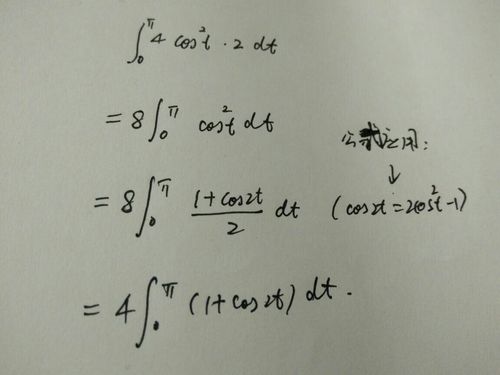 ∫₀^π 4 cos²t · 2 dt
= 8 ∫₀^π cos²t dt
公式应用:
↓
= 8 ∫₀^π (1+cos2t)/2 dt (cos2t = 2cos²t-1)
= 4 ∫₀^π (1+cos2t) dt.